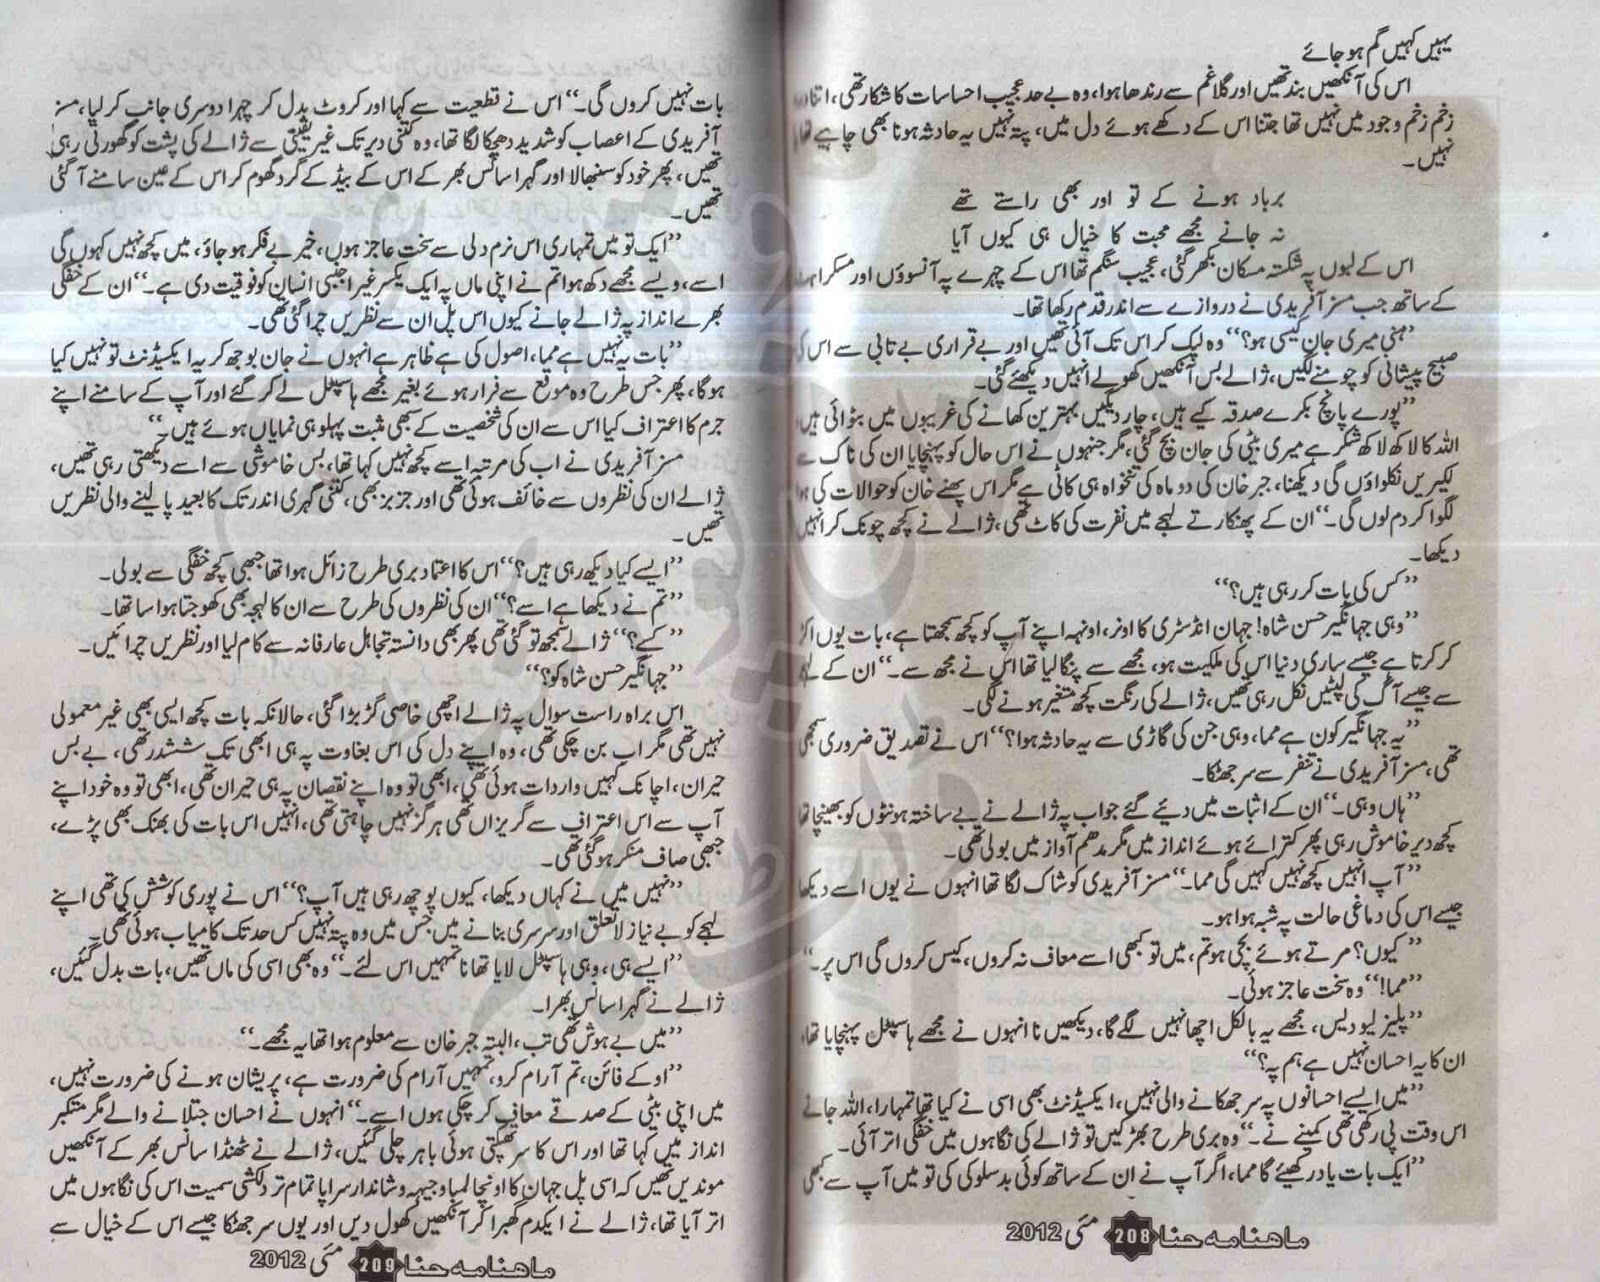 یہیں کہیں گم ہو جائے
اس کی آنکھیں بند تھیں اور گلا غم سے رندھا ہوا، وہ بے حد عجیب احساسات کا شکار تھی، اتنا درد
زخم زخم وجود میں نہیں تھا جتنا اس کے دکھے ہوئے دل میں، پتہ نہیں یہ حادثہ ہونا بھی چاہیے تھا یا
نہیں۔
برباد ہونے کے تو اور بھی راستے تھے
نہ جانے مجھے محبت کا خیال ہی کیوں آیا
اس کے لبوں پہ شکستہ مسکان بکھر گئی، عجیب سنگم تھا اس کے چہرے پہ آنسوؤں اور مسکراہٹ
کے ساتھ جب مسز آفریدی نے دروازے سے اندر قدم رکھا تھا۔
”ہنی میری جان کیسی ہو؟“ وہ لپک کر اس تک آئی تھیں اور بے قراری بے تابی سے اس کی
صبیح پیشانی کو چومنے لگیں، ژالے بس آنکھیں کھولے انہیں دیکھے گئی۔
”پورے پانچ بکرے صدقہ کیے ہیں، چار دیگیں بہترین کھانے کی غریبوں میں بٹوائی ہیں،
اللہ کا لاکھ لاکھ شکر ہے میری بیٹی کی جان بچ گئی، مگر جنہوں نے اس حال کو پہنچایا ان کی ناک سے
لکیریں نکلواؤں گی دیکھنا، جبر خان کی دو ماہ کی تنخواہ ہی کاٹی ہے مگر اس پھنے خان کو حوالات کی ہوا
لگوا کر دم لوں گی۔“ ان کے پھنکارتے لہجے میں نفرت کی کاٹ تھی، ژالے نے کچھ چونک کر انہیں
دیکھا۔
”کس کی بات کر رہی ہیں؟“
”وہی جہانگیر حسن شاہ! جہان انڈسٹری کا اونر، اونہہ اپنے آپ کو کچھ سمجھتا ہے، بات یوں اکڑ
کر کرتا ہے جیسے ساری دنیا اس کی ملکیت ہو، مجھے سے پنگا لیا تھا اس نے مجھ سے۔“ ان کے لہجے
سے جیسے آگ کی لپٹیں نکل رہی تھیں، ژالے کی رنگت کچھ متغیر ہونے لگی۔
”یہ جہانگیر کون ہے مما، وہی جن کی گاڑی سے یہ حادثہ ہوا؟“ اس نے تصدیق ضروری سمجھی
تھی، مسز آفریدی نے تنفر سے سر جھٹکا۔
”ہاں وہی۔“ ان کے اثبات میں دیئے گئے جواب پہ ژالے نے بے ساختہ ہونٹوں کو بھینچا تھا
کچھ دیر خاموش رہی پھر کترائے ہوئے انداز میں مگر مدھم آواز میں بولی تھی۔
”آپ انہیں کچھ نہیں کہیں گی مما۔“ مسز آفریدی کو شاک لگا تھا انہوں نے یوں اسے دیکھا
جیسے اس کی دماغی حالت پہ شبہ ہوا ہو۔
”کیوں؟ مرتے ہوئے بچی ہو تم، میں تو کبھی اسے معاف نہ کروں، کیس کروں گی اس پر۔“
”مما!“ وہ سخت عاجز ہوئی۔
”پلیز لیو دیس، مجھے یہ بالکل اچھا نہیں لگے گا، دیکھیں نا انہوں نے مجھے ہاسپٹل پہنچایا تھا،
ان کا یہ احسان نہیں ہے ہم پہ؟“
”میں ایسے احسانوں پہ سر جھکانے والی نہیں، ایکسیڈنٹ بھی اسی نے کیا تھا تمہارا، اللہ جانے
اس وقت پی رکھی تھی کمینے نے۔“ وہ بری طرح بھڑکیں تو ژالے کی نگاہوں میں خفگی اتر آئی۔
”ایک بات یاد رکھیئے گا مما، اگر آپ نے ان کے ساتھ کوئی بدسلوکی کی تو میں آپ سے کبھی
ماہنامہ حنا 208 مئی 2012
بات نہیں کروں گی۔“ اس نے قطعیت سے کہا اور کروٹ بدل کر چہرا دوسری جانب کر لیا، مسز
آفریدی کے اعصاب کو شدید دھچکا لگا تھا، وہ کتنی دیر تک غیر یقینی سے ژالے کی پشت کو گھورتی رہی
تھیں، پھر خود کو سنبھالا اور گہرا سانس بھر کے اس کے بیڈ کے گرد گھوم کر اس کے عین سامنے آ گئی
تھیں۔
”ایک تو میں تمہاری اس نرم دلی سے سخت عاجز ہوں، خیر بے فکر ہو جاؤ، میں کچھ نہیں کہوں گی
اسے، ویسے مجھے دکھ ہوا تم نے اپنی ماں پہ ایک یکسر غیر اجنبی انسان کو فوقیت دی ہے۔“ ان کے خفگی
بھرے انداز پہ ژالے جانے کیوں اس پل ان سے نظریں چرا گئی تھی۔
”بات یہ نہیں ہے مما، اصول کی ہے ظاہر ہے انہوں نے جان بوجھ کر یہ ایکسیڈنٹ تو نہیں کیا
ہو گا، پھر جس طرح وہ موقع سے فرار ہوئے بغیر مجھے ہاسپٹل لے کر گئے اور آپ کے سامنے اپنے
جرم کا اعتراف کیا اس سے ان کی شخصیت کے سبھی مثبت پہلو ہی نمایاں ہوئے ہیں۔“
مسز آفریدی نے اب کی مرتبہ اسے کچھ نہیں کہا تھا، بس خاموشی سے اسے دیکھتی رہی تھیں،
ژالے ان کی نظروں سے خائف ہوئی تھی اور جزبز بھی، کتنی گہری اندر تک کا بعید پا لینے والی نظریں
تھیں۔
”ایسے کیا دیکھ رہی ہیں؟“ اس کا اعتماد بری طرح زائل ہوا تھا جبھی کچھ خفگی سے بولی۔
”تم نے دیکھا ہے اسے؟“ ان کی نظروں کی طرح سے ان کا لہجہ بھی کھوجتا ہوا سا تھا۔
”کسے؟“ ژالے سمجھ تو گئی تھی پھر بھی دانستہ تجاہل عارفانہ سے کام لیا اور نظریں چرائیں۔
”جہانگیر حسن شاہ کو؟“
اس براہ راست سوال پہ ژالے اچھی خاصی گڑبڑا گئی، حالانکہ بات کچھ ایسی بھی غیر معمولی
نہیں تھی مگر اب بن چکی تھی، وہ اپنے دل کی اس بغاوت پہ ہی ابھی تک ششدر تھی، بے بس
حیران، اچانک کہیں واردات ہوئی تھی، ابھی تو وہ اپنے نقصان پہ ہی حیران تھی، ابھی تو وہ خود اپنے
آپ سے اس اعتراف سے گریزاں تھی ہرگز نہیں چاہتی تھی، انہیں اس بات کی بھنک بھی پڑے،
جبھی صاف منکر ہو گئی تھی۔
”نہیں میں نے کہاں دیکھا، کیوں پوچھ رہی ہیں آپ؟“ اس نے پوری کوشش کی تھی اپنے
لہجے کو بے نیاز لا تعلق اور سرسری بنانے میں جس میں وہ پتہ نہیں کس حد تک کامیاب ہوئی تھی۔
”ایسے ہی، وہی ہاسپٹل لایا تھا نا تمہیں اس لئے۔“ وہ بھی اسی کی ماں تھیں، بات بدل گئیں،
ژالے نے گہرا سانس بھرا۔
”میں بے ہوش تھی تب، البتہ جبر خان سے معلوم ہوا تھا یہ مجھے۔“
”او کے فائن، تم آرام کرو، تمہیں آرام کی ضرورت ہے، پریشان ہونے کی ضرورت نہیں،
میں اپنی بیٹی کے صدقے معاف کر چکی ہوں اسے۔“ انہوں نے احسان جتلانے والے مگر متکبر
انداز میں کہا تھا اور اس کا سر تھپکتی ہوئی باہر چلی گئیں، ژالے نے ٹھنڈا سانس بھر کے آنکھیں
موندیں تھیں کہ اسی پل جہان کا اونچا لمبا وجیہہ و شاندار سراپا تمام تر دلکشی سمیت اس کی نگاہوں میں
اتر آیا تھا، ژالے نے ایکدم گھبرا کر آنکھیں کھول دیں اور یوں سر جھٹکا جیسے اس کے خیال سے
ماہنامہ حنا 209 مئی 2012